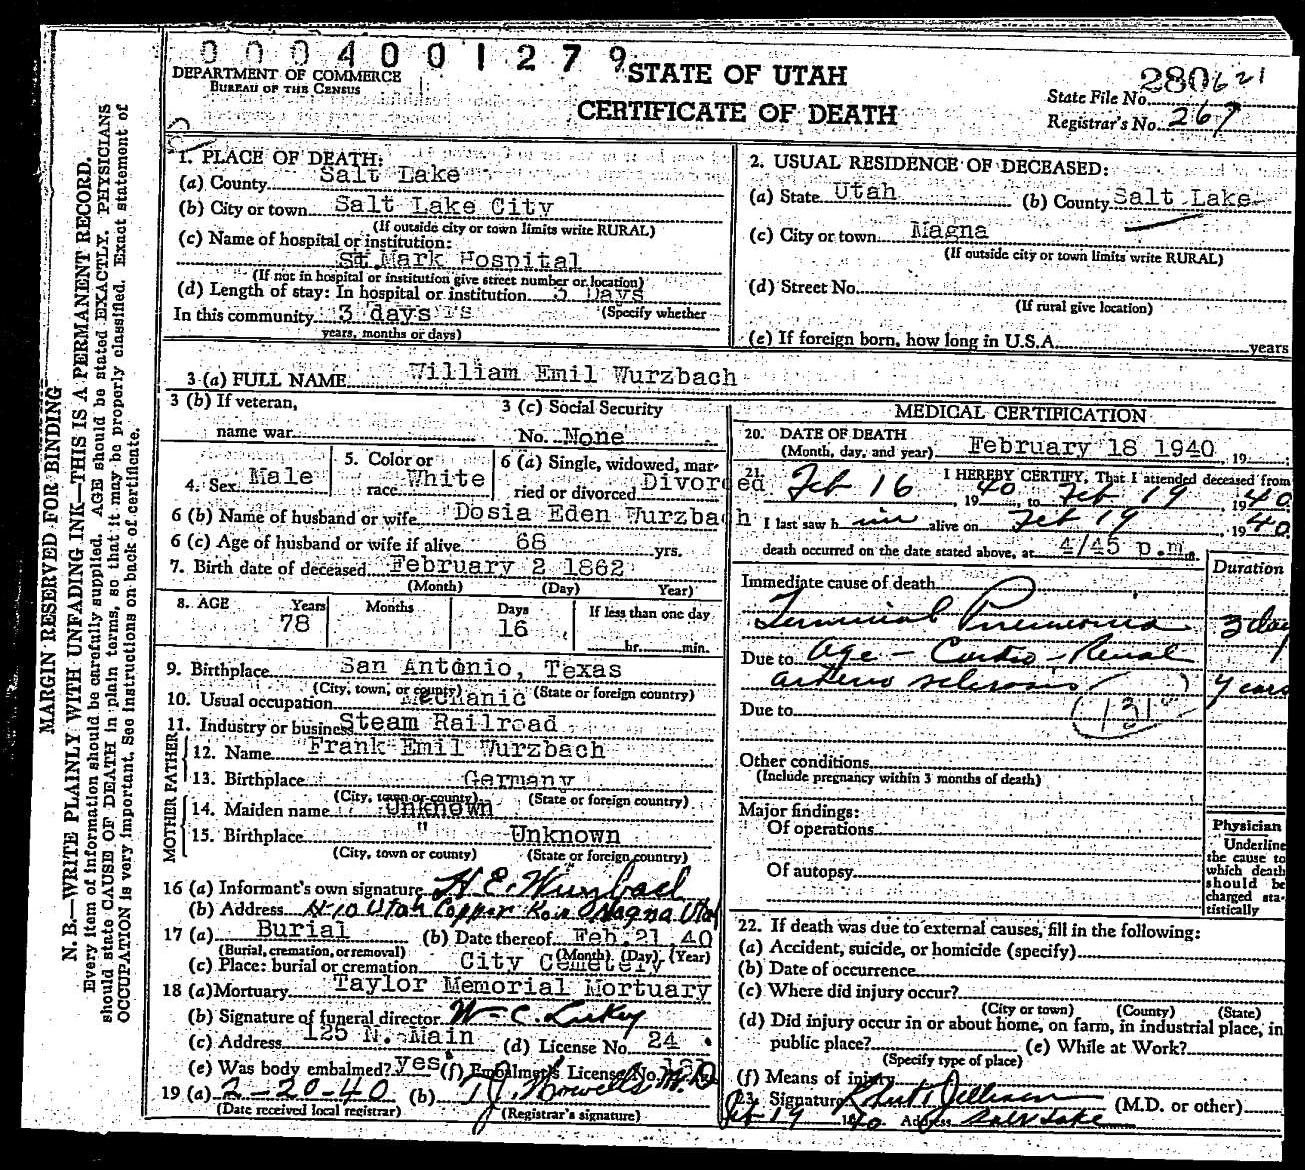 0004001279
DEPARTMENT OF COMMERCE
BUREAU OF THE CENSUS
STATE OF UTAH
CERTIFICATE OF DEATH
280621
State File No.
Registrar's No. 267
MARGIN RESERVED FOR BINDING
N. B.—WRITE PLAINLY WITH UNFADING INK—THIS IS A PERMANENT RECORD.
Every item of information should be carefully supplied. AGE should be stated EXACTLY. PHYSICIANS
should state CAUSE OF DEATH in plain terms, so that it may be properly classified. Exact statement of
OCCUPATION is very important. See instructions on back of certificate.
1. PLACE OF DEATH:
(a) County Salt Lake
(b) City or town Salt Lake City
(If outside city or town limits write RURAL)
(c) Name of hospital or institution:
St. Mark Hospital
(If not in hospital or institution give street number or location)
(d) Length of stay: In hospital or institution 3 Days
In this community 3 days (Specify whether
years, months or days)
2. USUAL RESIDENCE OF DECEASED:
(a) State Utah (b) County Salt Lake
(c) City or town Magna
(If outside city or town limits write RURAL)
(d) Street No.
(If rural give location)
(e) If foreign born, how long in U.S.A. years
3 (a) FULL NAME William Emil Wurzbach
3 (b) If veteran,
name war
3 (c) Social Security
No. None
4. Sex Male
5. Color or
race White
6 (a) Single, widowed, mar-
ried or divorced Divorced
6 (b) Name of husband or wife Dosia Eden Wurzbach
6 (c) Age of husband or wife if alive 68 yrs.
7. Birth date of deceased February 2 1862
(Month) (Day) Year)
8. AGE Years Months Days If less than one day
78 16 hr. min.
9. Birthplace San Antonio, Texas
(City, town, or county) (State or foreign country)
10. Usual occupation Mechanic
11. Industry or business Steam Railroad
FATHER
12. Name Frank Emil Wurzbach
13. Birthplace Germany
(City, town or county) (State or foreign country)
MOTHER
14. Maiden name Unknown
15. Birthplace " Unknown
(City, town or county) (State or foreign country)
16 (a) Informant's own signature H E. Wurzbach
(b) Address #10 Utah Copper Row Magna Utah
17 (a) Burial (b) Date thereof Feb. 21 40
(Burial, cremation, or removal) (Month) (Day) (Year)
(c) Place: burial or cremation City Cemetery
18 (a) Mortuary Taylor Memorial Mortuary
(b) Signature of funeral director W-C.
(c) Address 125 N. Main (d) License No. 24
(e) Was body embalmed? yes (f) Embalmer's License No.
19 (a) 2-20-40 (b) T.J. Howells M.D
(Date received local registrar) (Registrar's signature)
MEDICAL CERTIFICATION
20. DATE OF DEATH
(Month, day, and year) February 18 1940, 19
21. I HEREBY CERTIFY, That I attended deceased from
Feb 16, 1940 to Feb 19, 1940
I last saw h im alive on Feb 19, 1940
death occurred on the date stated above, at 4/45 p.m.
Duration
Immediate cause of death
Terminal Pneumonia 3 day
Due to age - Cardio - Renal
arterio sclerosis years
Due to 131
Other conditions
(Include pregnancy within 3 months of death)
Major findings:
Of operations
Of autopsy
Physician
Underline
the cause to
which death
should be
charged sta-
tistically
22. If death was due to external causes, fill in the following:
(a) Accident, suicide, or homicide (specify)
(b) Date of occurrence
(c) Where did injury occur?
(City or town) (County) (State)
(d) Did injury occur in or about home, on farm, in industrial place, in
public place? (e) While at Work?
(Specify type of place)
(f) Means of injury
23. Signature Robert (M.D. or other)
Feb 19 1940 Address Salt Lake